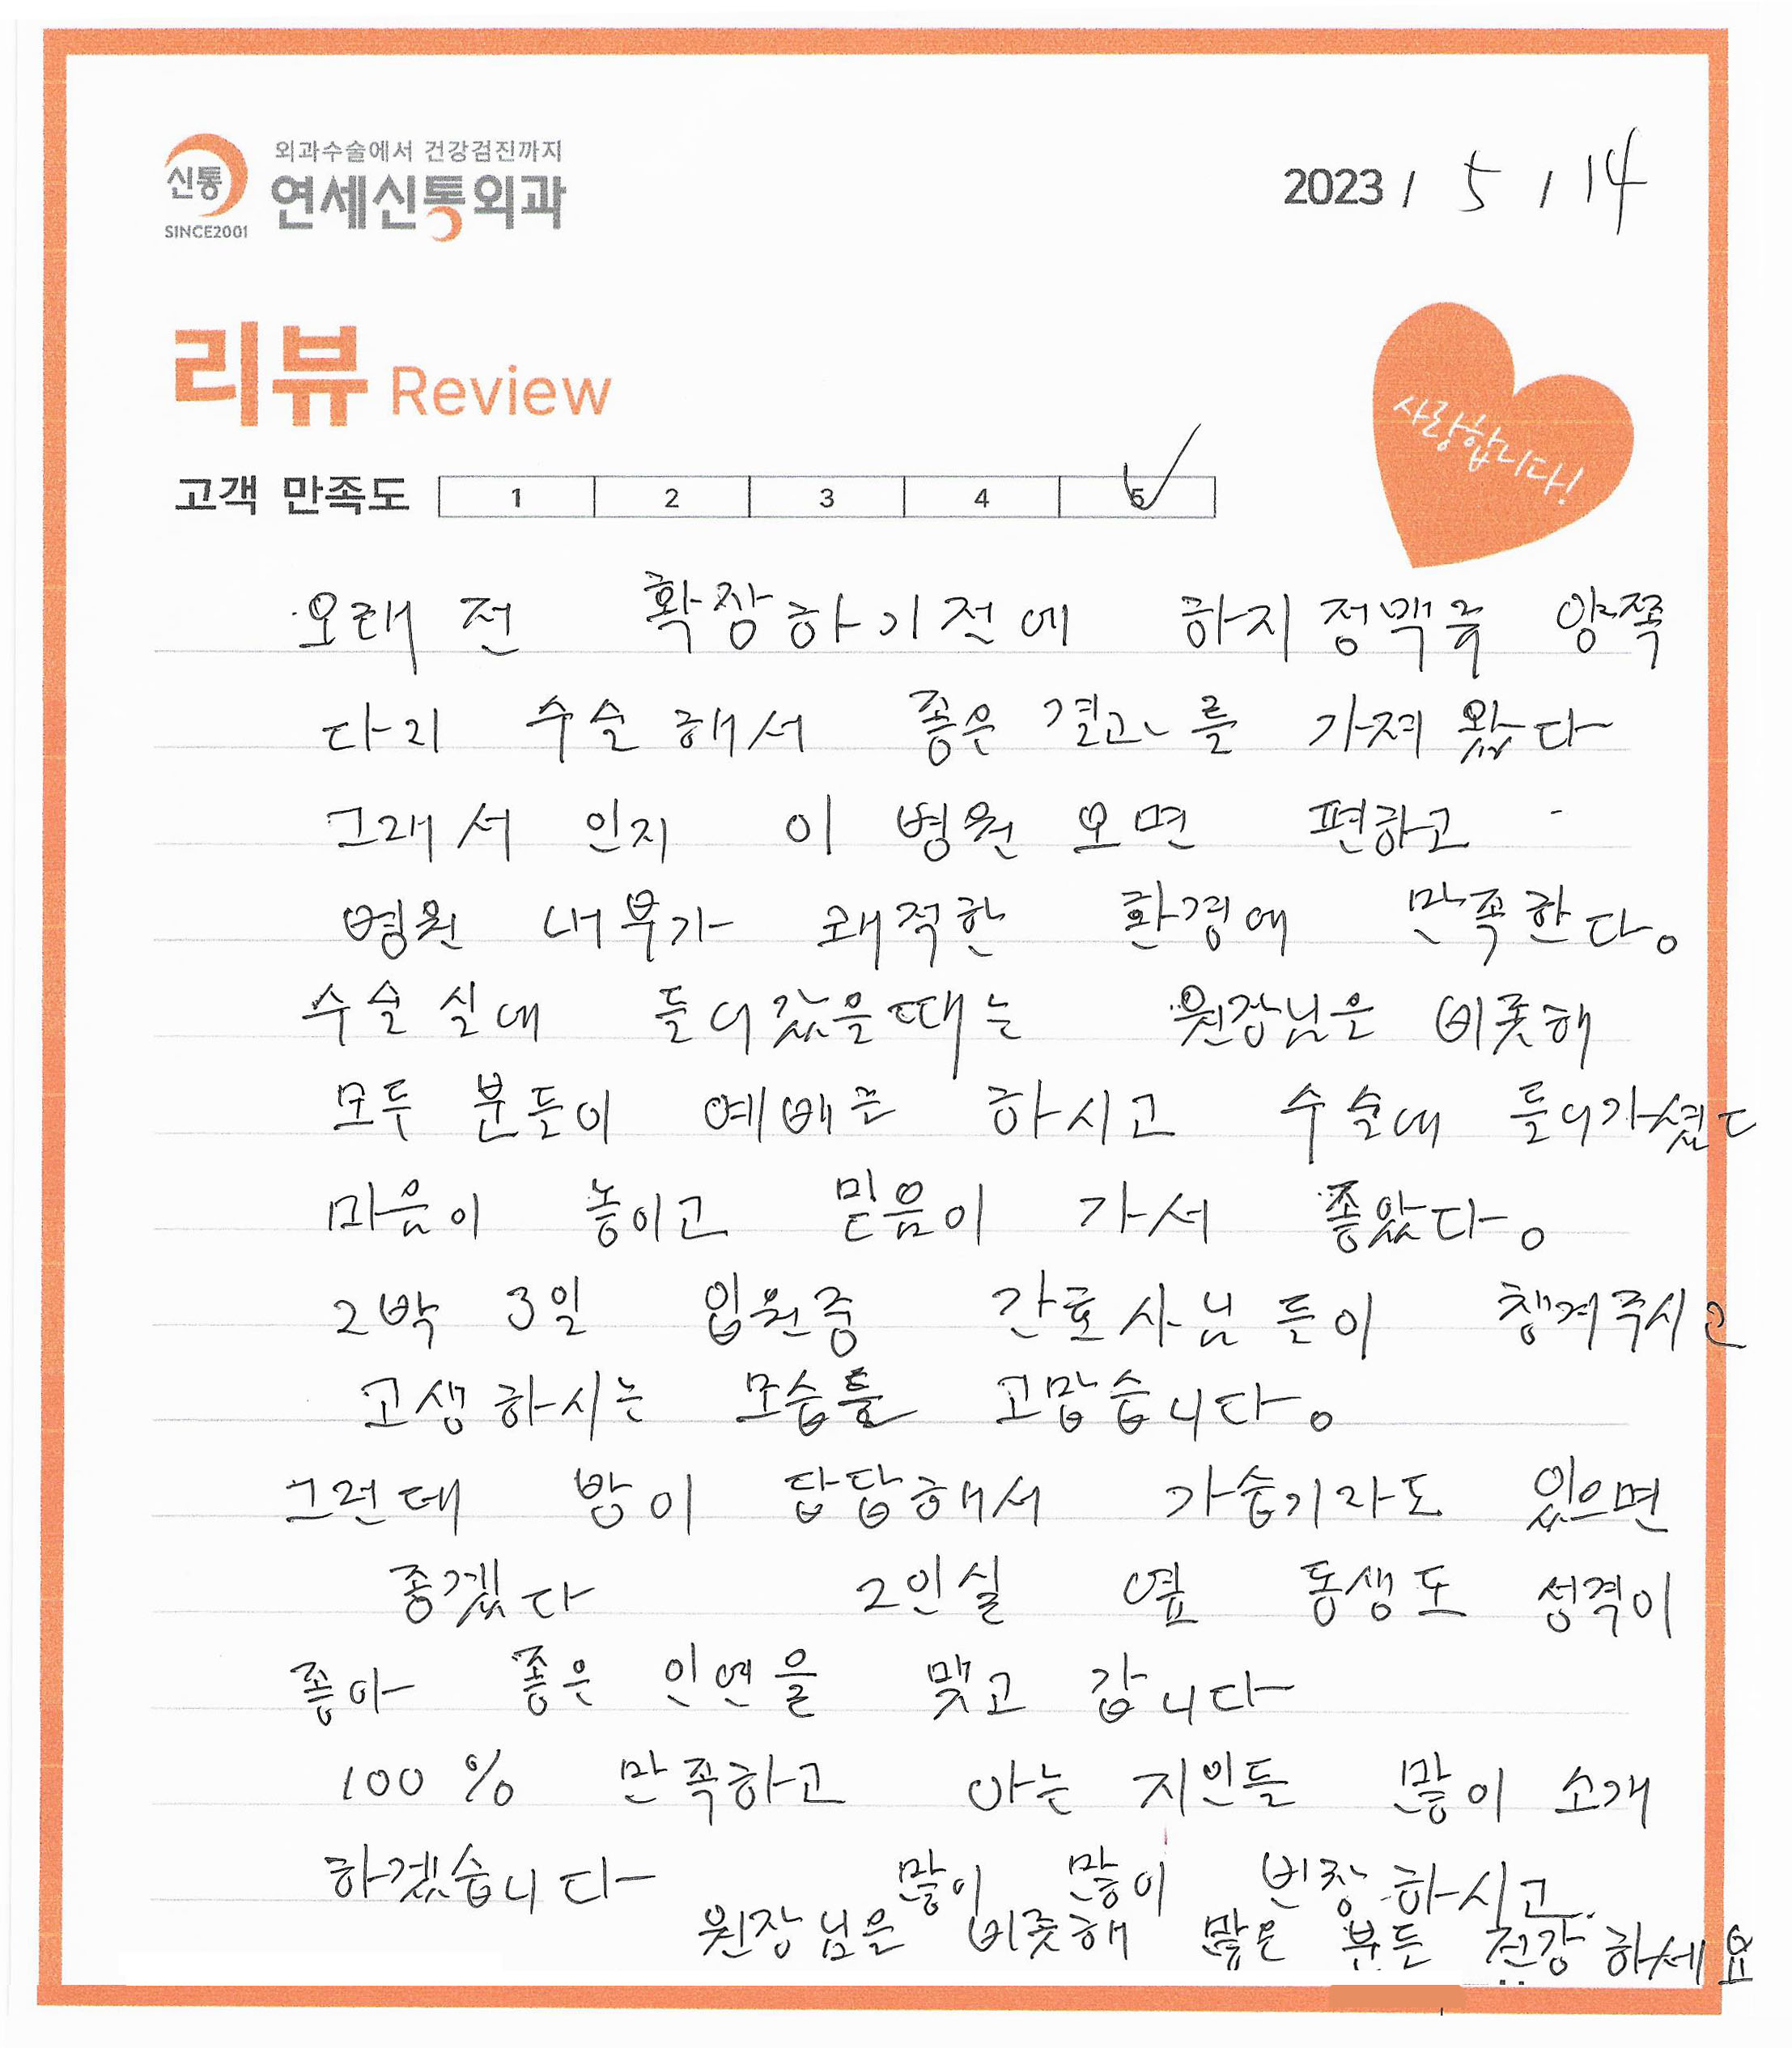 외과수술에서 건강검진까지
신통 연세신통외과
SINCE2001
2023 / 5 / 14
리뷰 Review
사랑합니다!
고객 만족도 1 2 3 4 5
오래 전 확장하기전에 하지정맥류 양쪽
다리 수술해서 좋은 결과를 가져왔다
그래서 인지 이 병원 오면 편하고
병원 내부가 쾌적한 환경에 만족한다。
수술실에 들어갔을때는 원장님은 비롯해
모두 분들이 예배는 하시고 수술에 들어가셨다
마음이 놓이고 믿음이 가서 좋았다。
2박 3일 입원중 간호사님들이 챙겨주시고
고생하시는 모습들 고맙습니다。
그런데 방이 답답해서 가습기라도 있으면
좋겠다 2인실 옆 동생도 성격이
좋아 좋은 인연을 맺고 갑니다
100% 만족하고 아는 지인들 많이 소개
하겠습니다 많이 많이 번창하시고.
원장님은 비롯해 많은 분든 건강하세요